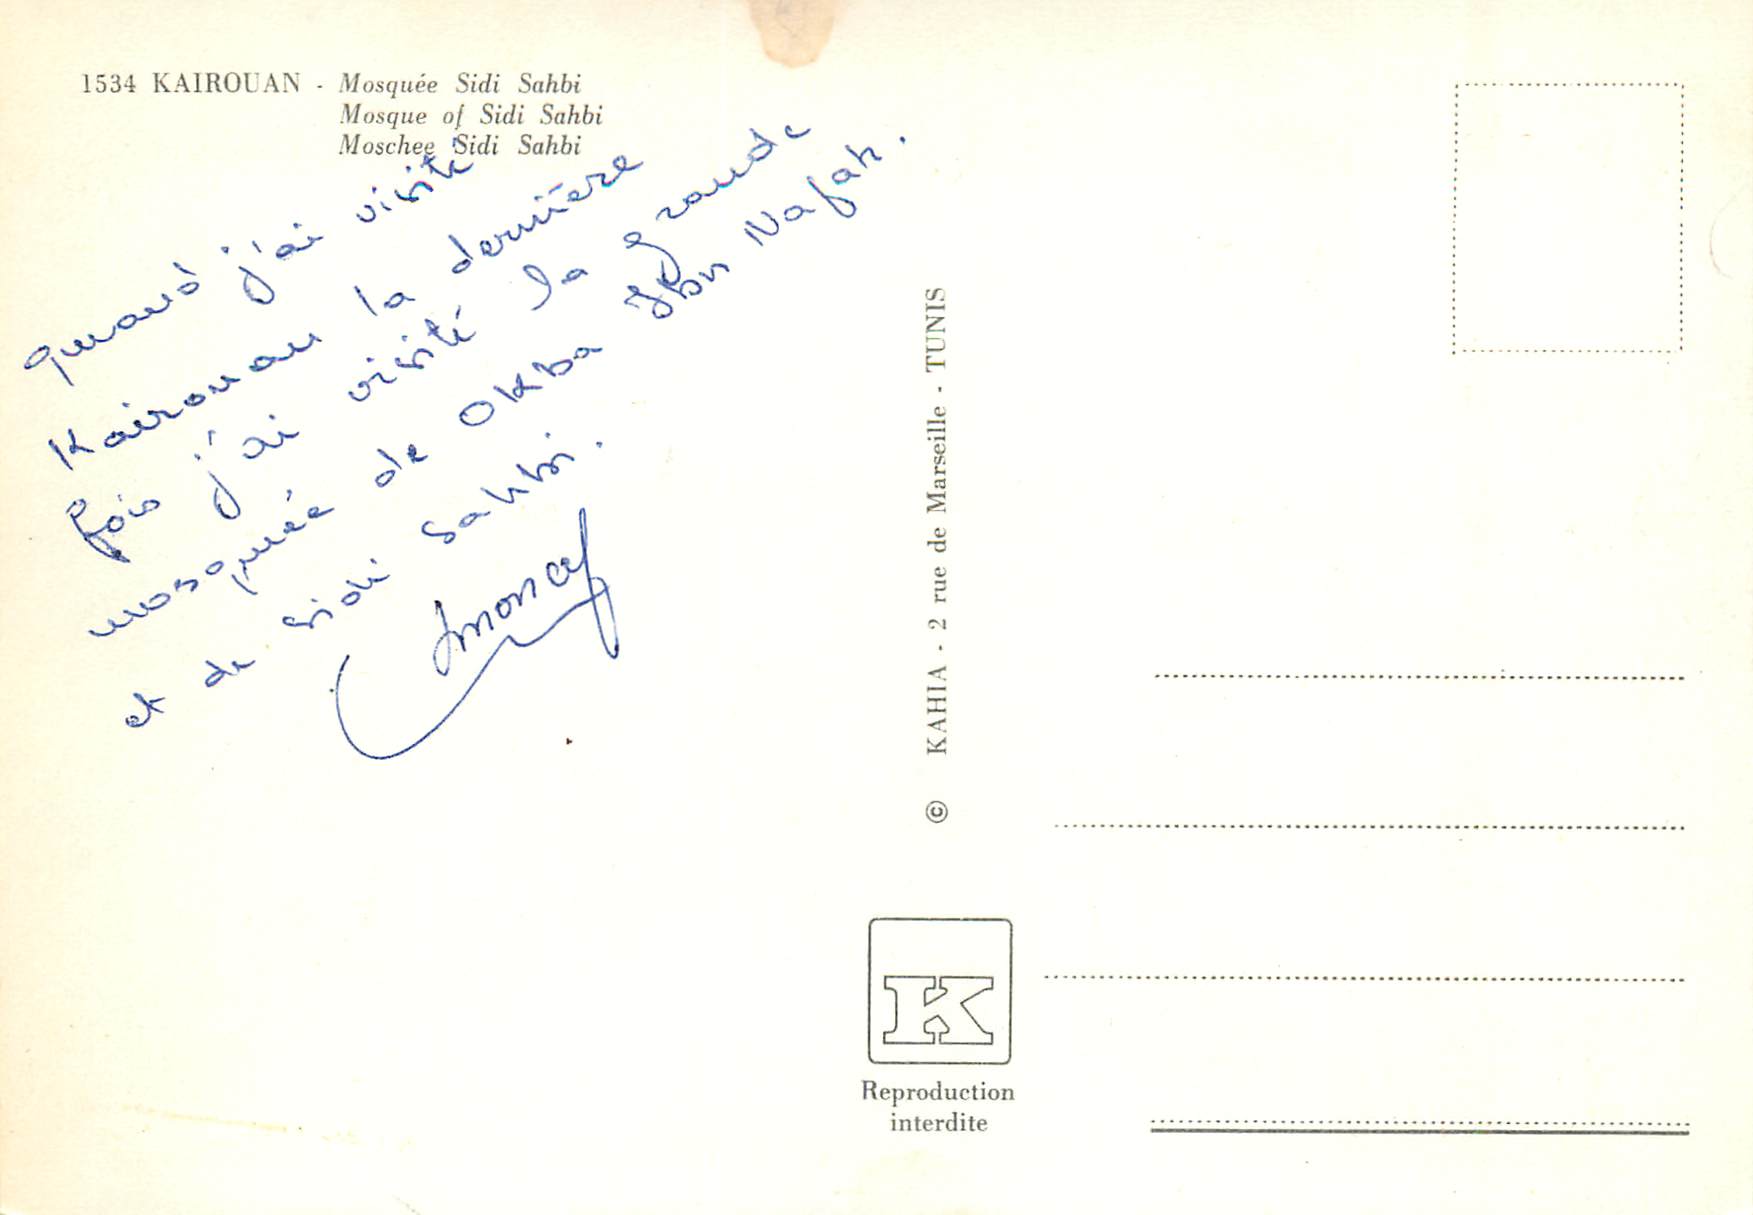 1534 KAIROUAN - Mosquée Sidi Sahbi
Mosque of Sidi Sahbi
Moschee Sidi Sahbi
quand j'ai visité
Kairouan la dernière
fois j'ai visité la grande
mosquée de Okba Ibn Nafah.
et de sidi sahbi.
moncef
© KAHIA - 2 rue de Marseille - TUNIS
K
Reproduction
interdite